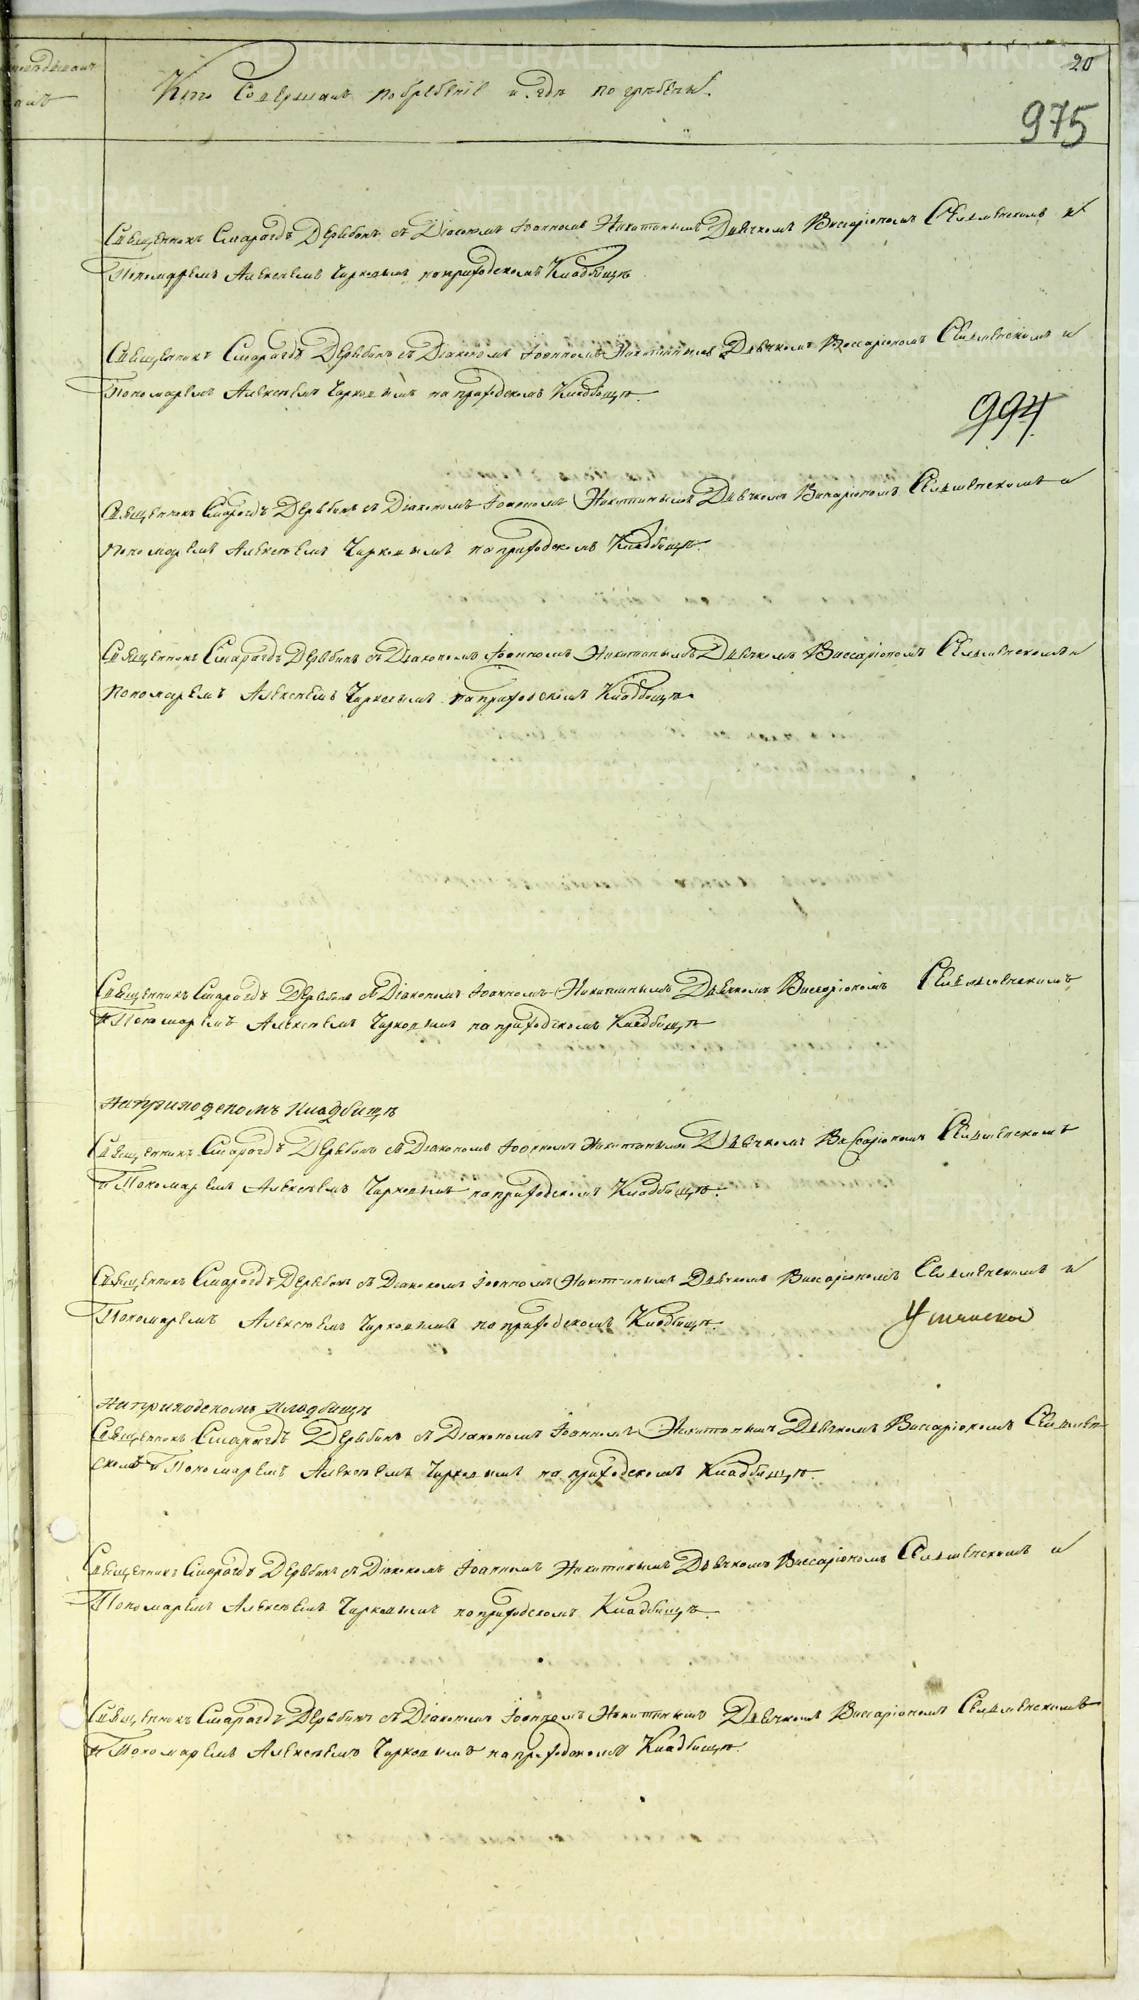 20
Кто Совершалъ погребенiе и гдѣ погребены.
975
Священникъ Смарагдъ Дерябинъ съ Дiакономъ Iоанномъ Никитинымъ Дьячкомъ Виссарiономъ Селменскомъ и
Пономаремъ Алексѣемъ Чирковымъ на приходскомъ Кладбищѣ
Священникъ Смарагдъ Дерябинъ съ Дiакономъ Iоанномъ Никитинымъ Дьячкомъ Виссарiономъ Селменскомъ и
Пономаремъ Алексѣемъ Чирковымъ на приходскомъ Кладбищѣ.
994
Священникъ Смарагдъ Дерябинъ съ Дiакономъ Iоанномъ Никитинымъ Дьячкомъ Виссарiономъ Селменскомъ и
Пономаремъ Алексѣемъ Чирковымъ на приходскомъ Кладбищѣ.
Священникъ Смарагдъ Дерябинъ съ Дiакономъ Iоанномъ Никитинымъ Дьячкомъ Виссарiономъ Селменскомъ и
Пономаремъ Алексѣемъ Чирковымъ на приходскомъ Кладбищѣ.
Священникъ Смарагдъ Дерябинъ съ Дiакономъ Iоанномъ Никитинымъ Дьячкомъ Виссарiономъ Селменскомъ
и Пономаремъ Алексѣемъ Чирковымъ на приходскомъ Кладбищѣ
На приходскомъ кладбищѣ
Священникъ Смарагдъ Дерябинъ съ Дiакономъ Iоанномъ Никитинымъ Дьячкомъ Виссарiономъ Селменскомъ
и Пономаремъ Алексѣемъ Чирковымъ на приходскомъ Кладбищѣ.
Священникъ Смарагдъ Дерябинъ съ Дiакономъ Iоанномъ Никитинымъ Дьячкомъ Виссарiономъ Селменскомъ и
Пономаремъ Алексѣемъ Чирковымъ на приходскомъ Кладбищѣ.
На приходскомъ кладбищѣ
Священникъ Смарагдъ Дерябинъ съ Дiакономъ Iоанномъ Никитинымъ Дьячкомъ Виссарiономъ Селмен-
скомъ и Пономаремъ Алексѣемъ Чирковымъ на приходскомъ Кладбищѣ.
Священникъ Смарагдъ Дерябинъ съ Дiакономъ Iоанномъ Никитинымъ Дьячкомъ Виссарiономъ Селменскомъ и
Пономаремъ Алексѣемъ Чирковымъ на приходскомъ Кладбищѣ.
Священникъ Смарагдъ Дерябинъ съ Дiакономъ Iоанномъ Никитинымъ Дьячкомъ Виссарiономъ Селменскомъ
и Пономаремъ Алексѣемъ Чирковымъ на приходскомъ Кладбищѣ.